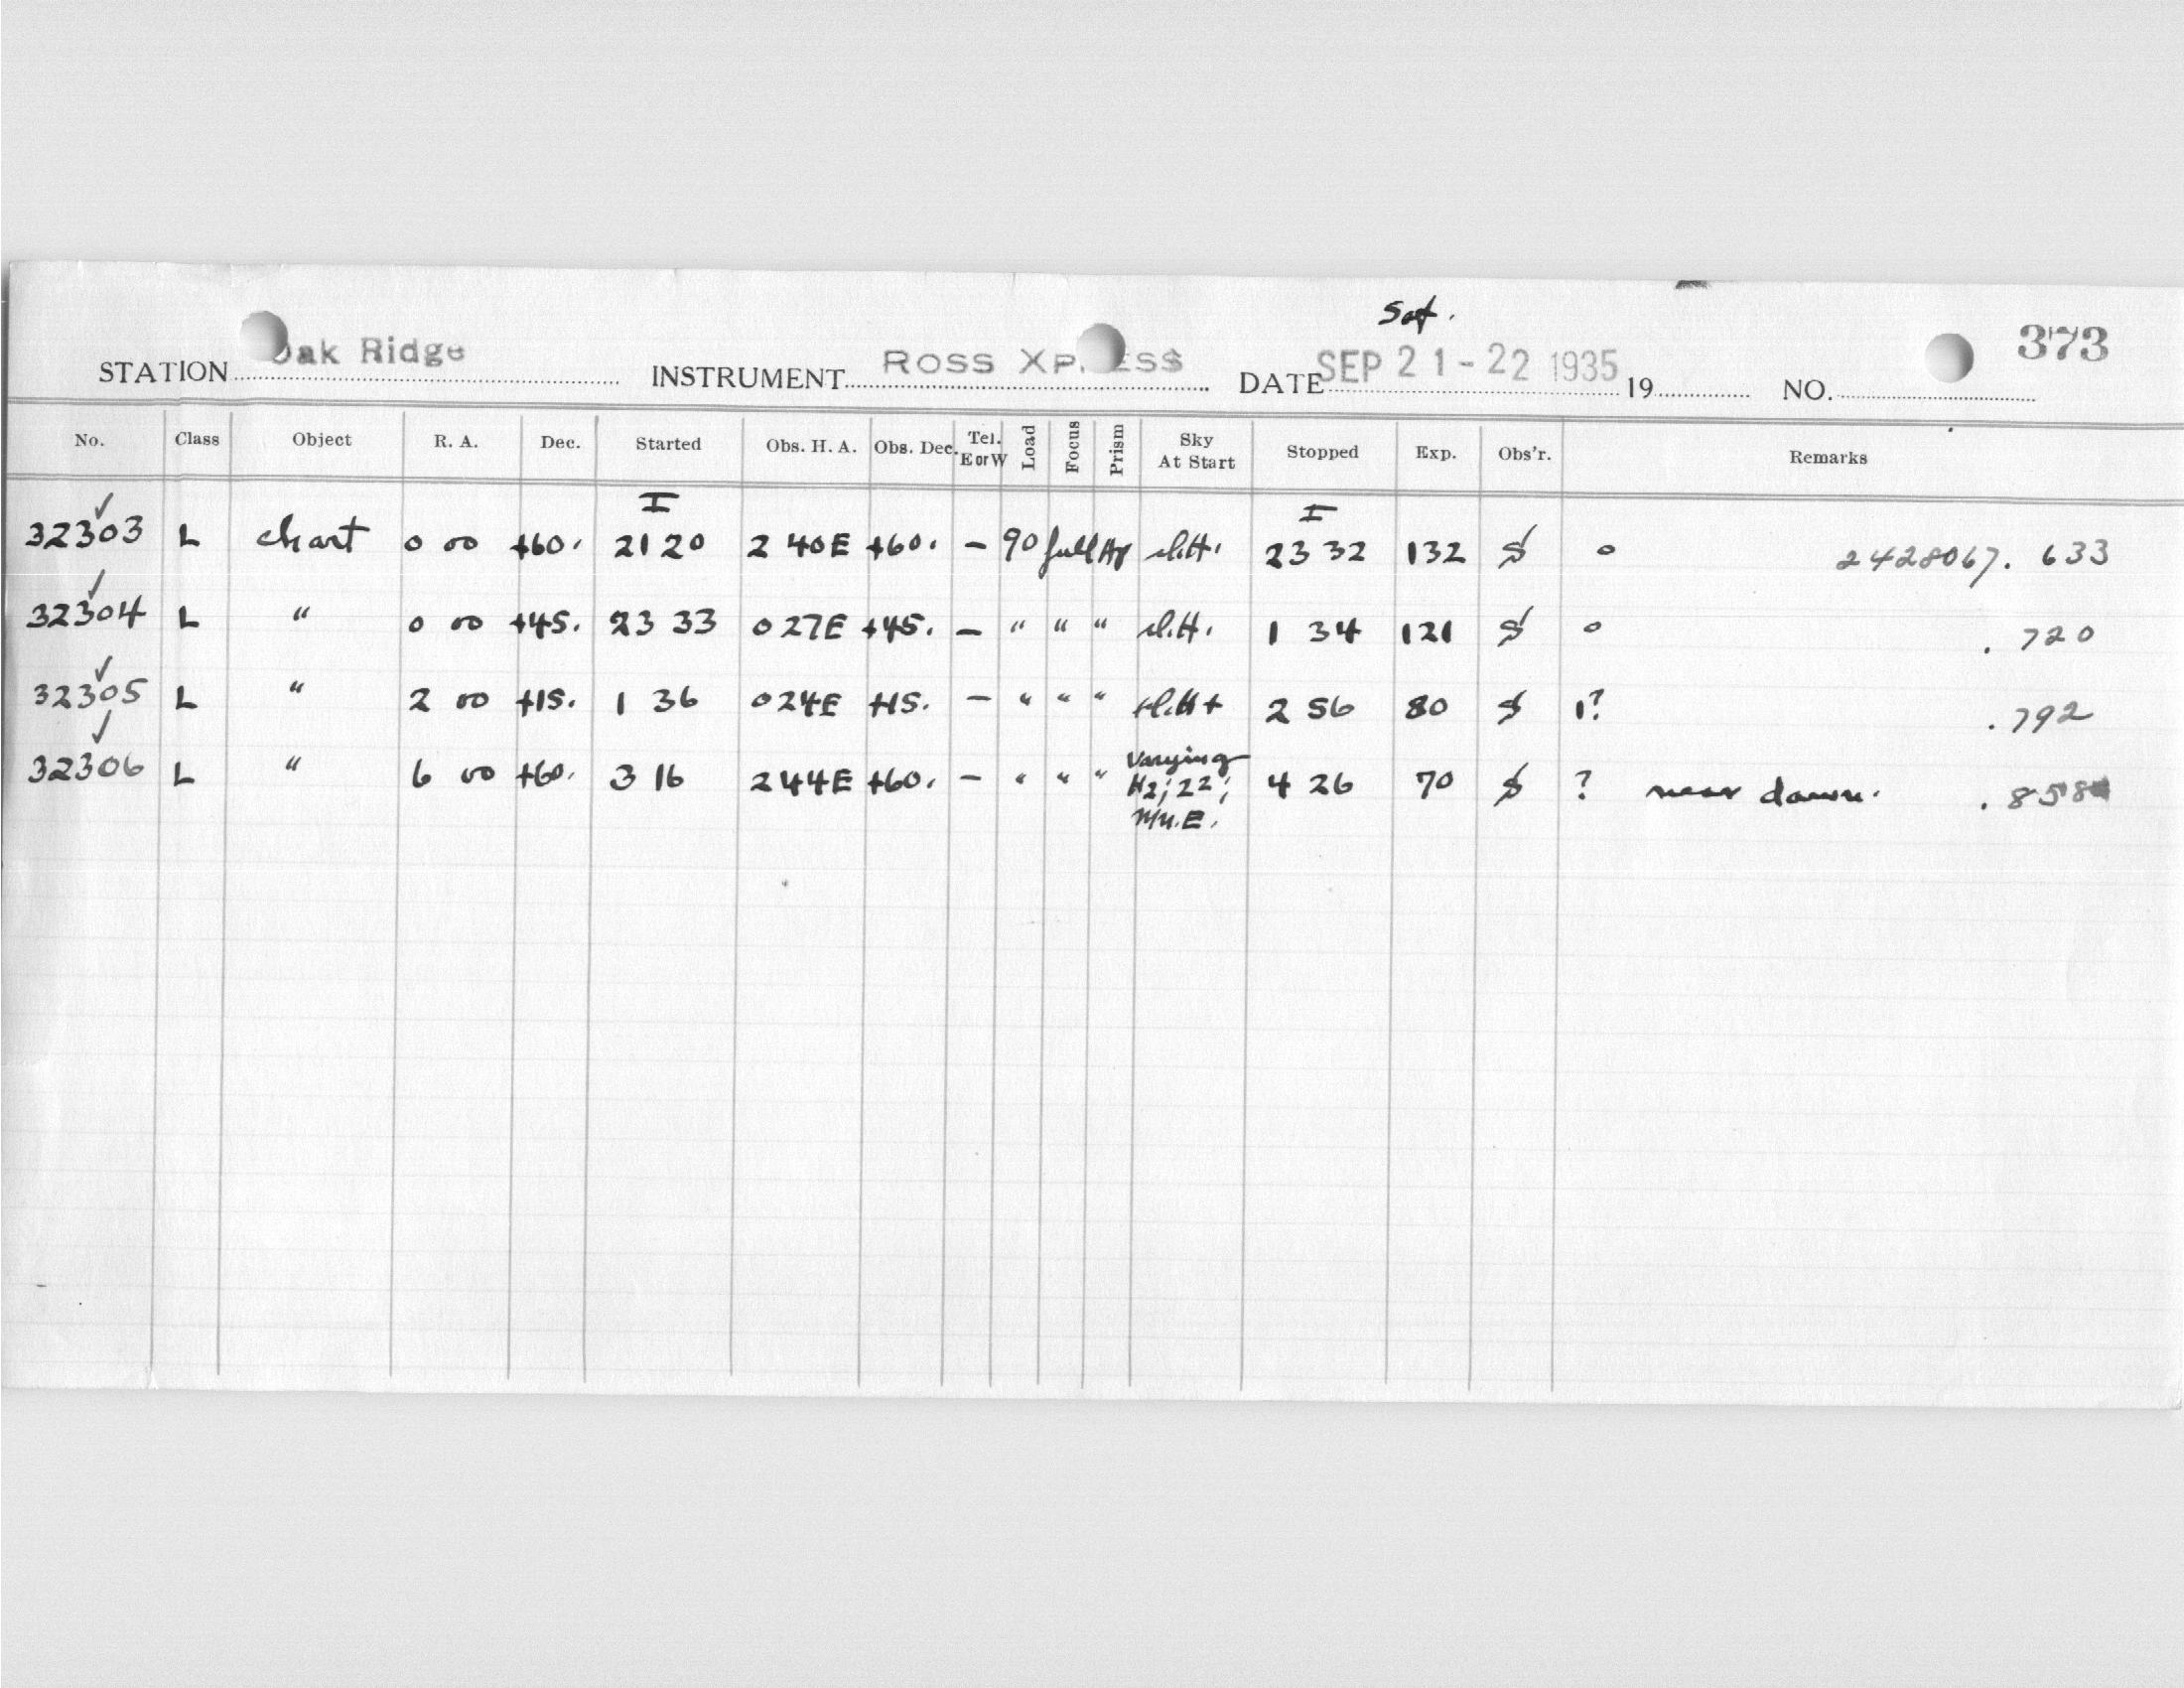 Sat.
STATION Oak Ridge INSTRUMENT ROSS XPRESS DATE SEP 21-22 1935 19 NO. 373
No. Class Object R. A. Dec. Started Obs. H. A. Obs. Dec. Tel. E or W Load Focus Prism Sky At Start Stopped Exp. Obs'r. Remarks
I I
32303 L chart 0 00 +60. 21 20 2 40E +60. - 90 full sl.H. 23 32 132 0 2428067. 633
32304 L " 0 00 +45. 23 33 0 27E +45. - " " " sl.H. 1 34 121 0 . 720
32305 L " 2 00 +15. 1 36 0 24E +15. - " " " sl.H+ 2 56 80 1? . 792
32306 L " 6 00 +60. 3 16 2 44E +60. - " " " Varying H2; 22; 4 26 70 ? near dawn. . 858